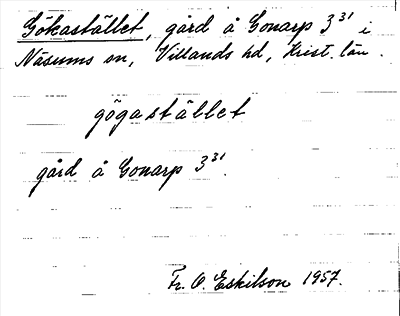 Gökastället, gård å Gonarp 3³¹ i
Näsums sn, Villands hd, Krist. län.
gögastället
gård å Gonarp 3³¹.
Fr. O. Eskilson 1957.